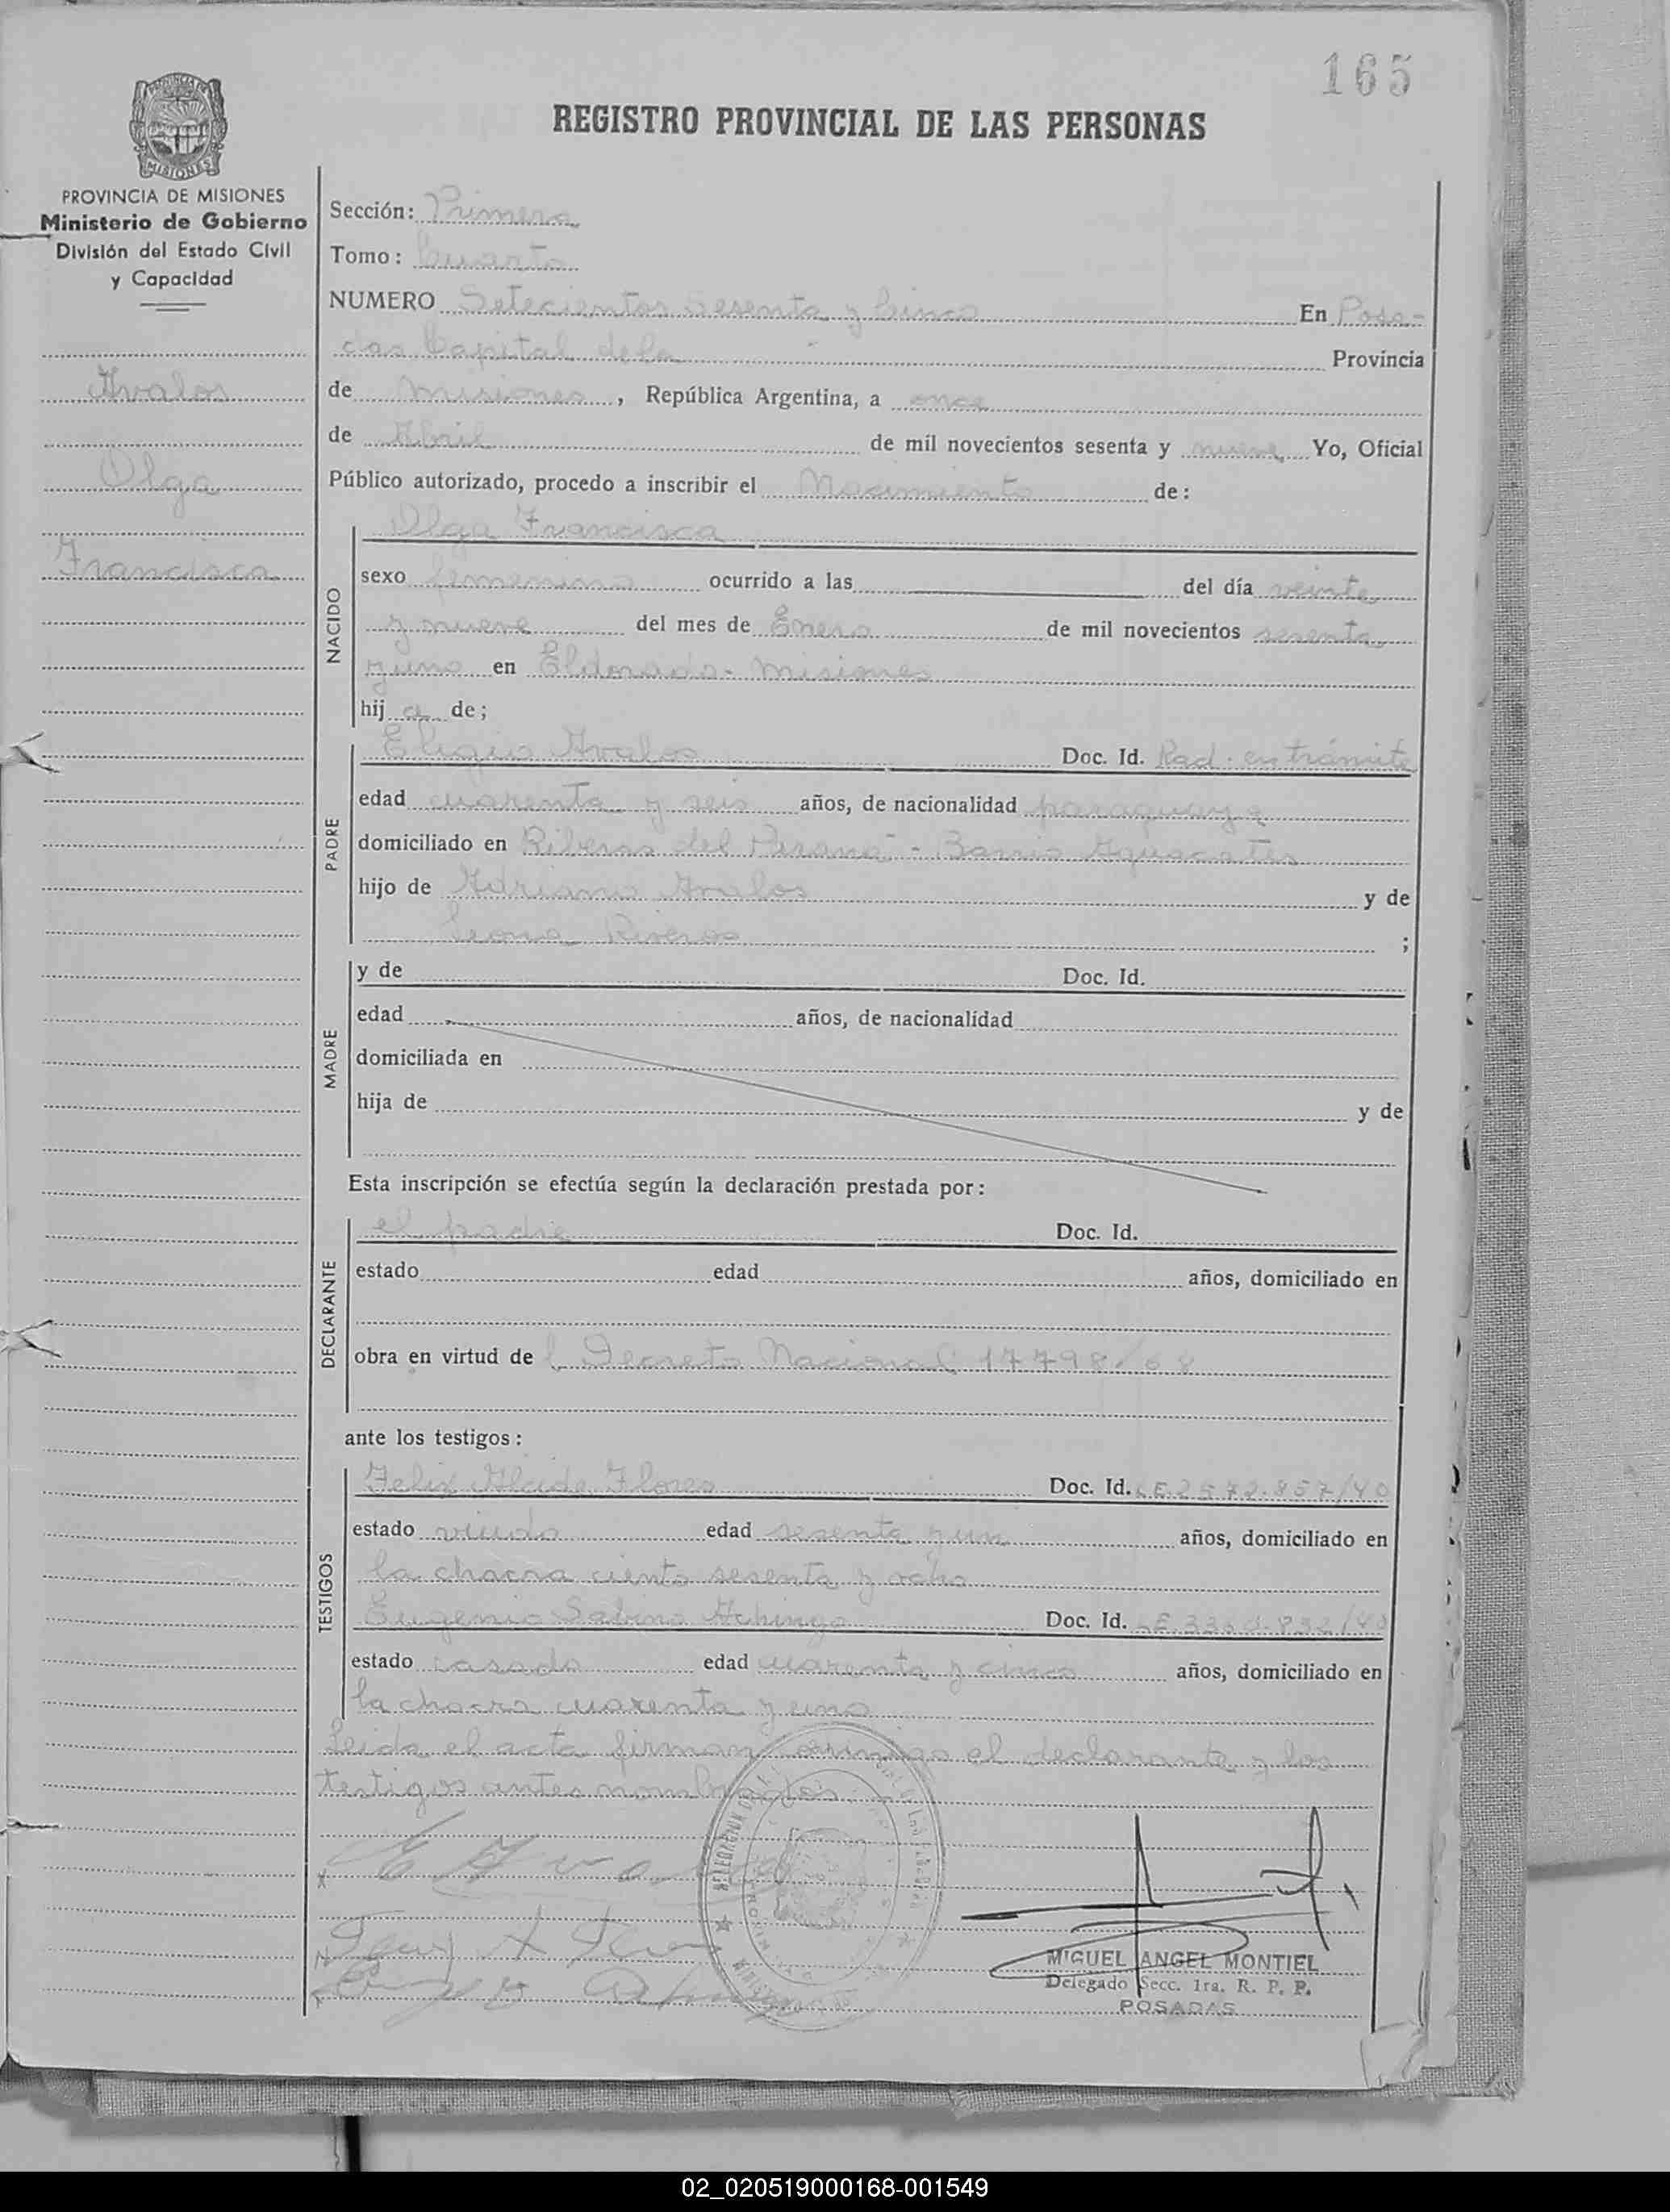 165
REGISTRO PROVINCIAL DE LAS PERSONAS
PROVINCIA DE MISIONES
Ministerio de Gobierno
División del Estado Civil
y Capacidad
Avalos
Olga
Francisca
Sección: Primera
Tomo: Cuarto
NUMERO Setecientos sesenta y Cinco En Posa-
das Capital de la Provincia
de Misiones, República Argentina, a once
de Abril de mil novecientos sesenta y nueve Yo, Oficial
Público autorizado, procedo a inscribir el Nacimiento de:
NACIDO
Olga Francisca
sexo femenino ocurrido a las del día veinte
y nueve del mes de Enero de mil novecientos sesenta
y uno en Eldorado - Misiones
hija de;
PADRE
Eligio Avalos Doc. Id. Rad. en trámite
edad cuarenta y seis años, de nacionalidad paraguaya
domiciliado en Riberas del Paraná - Barrio Aguacates
hijo de Adriano Avalos y de
Leona Riveros ;
MADRE
y de Doc. Id.
edad años, de nacionalidad
domiciliada en
hija de y de
Esta inscripción se efectúa según la declaración prestada por:
DECLARANTE
el padre Doc. Id.
estado edad años, domiciliado en
obra en virtud del Decreto Nacional 17798/68
ante los testigos:
TESTIGOS
Felix Alcide Flores Doc. Id. LE.2572.857/40
estado viudo edad sesenta y un años, domiciliado en
la chacra ciento sesenta y ocho
Eugenio Sabino Doc. Id. LE
estado casado edad cuarenta y cinco años, domiciliado en
la chacra cuarenta y uno
Leida el acta firman conmigo el declarante y los
testigos antes nombrados.
MIGUEL ANGEL MONTIEL
Delegado Secc. 1ra. R. P. P.
POSADAS
02_020519000168-001549